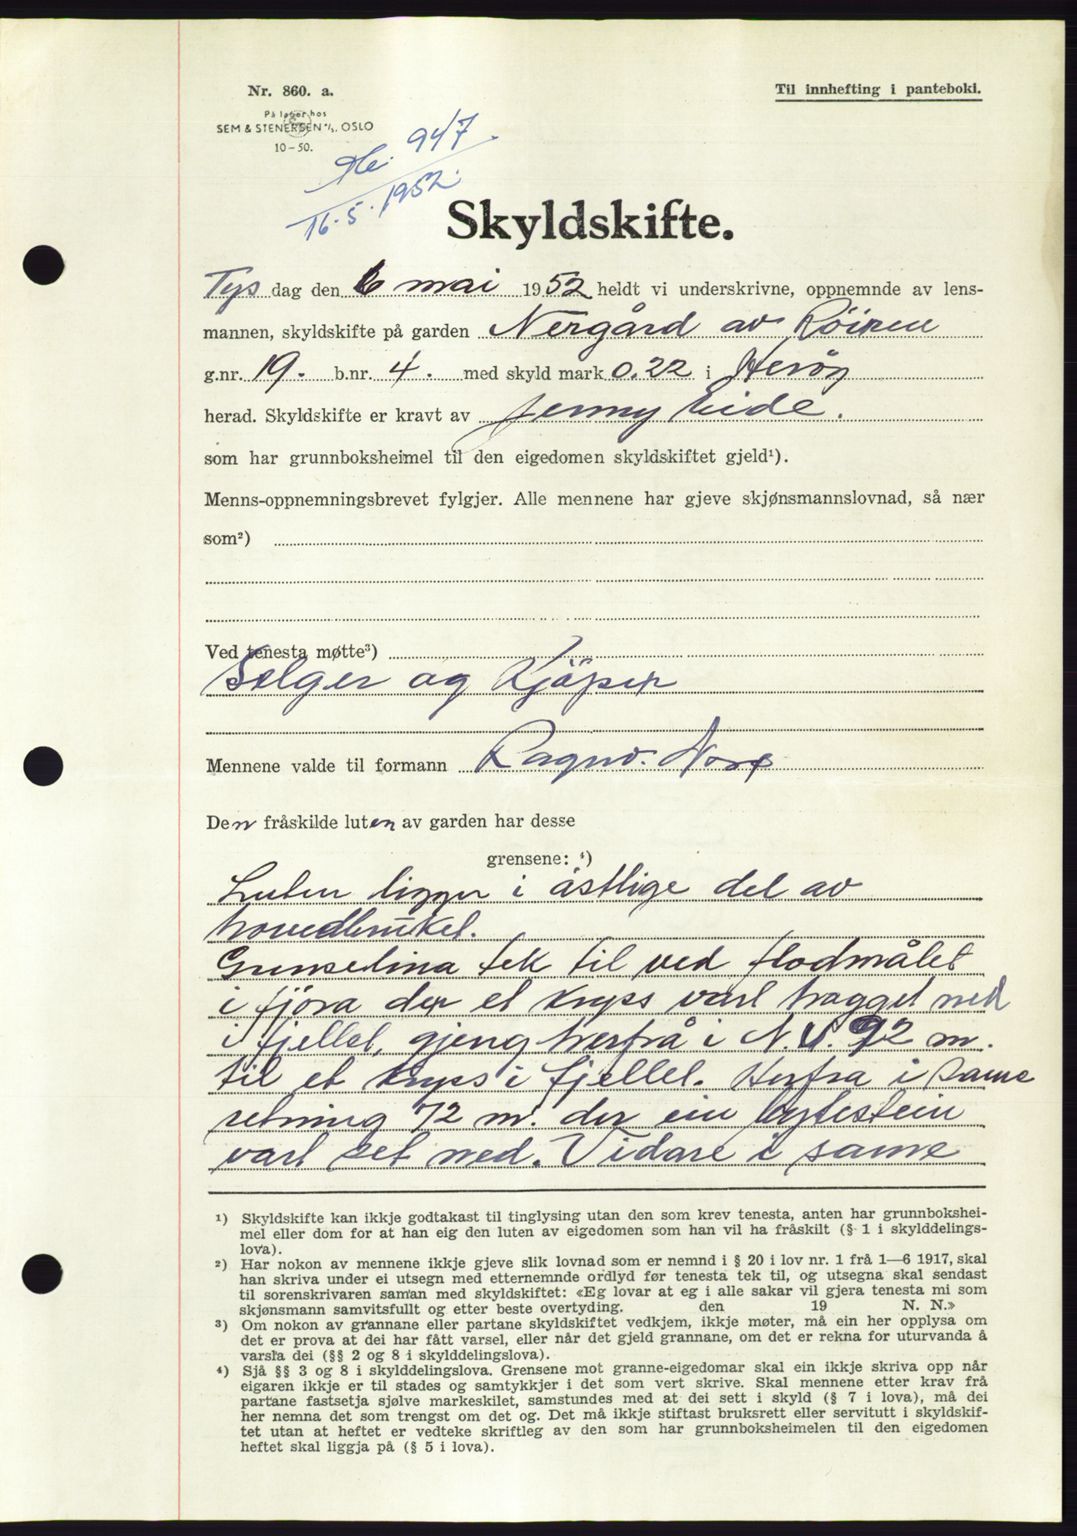 Nr. 860. a.
Til innhefting i panteboki.
På lager hos
SEM & STENERSEN A/S. OSLO
10-50.
947
16.5.1952.
Skyldskifte.
Tys dag den 6 mai 1952 heldt vi underskrivne, oppnemnde av lens-
mannen, skyldskifte på garden Nergård av Röiren
g.nr. 19. b.nr. 4. med skyld mark 0.22 i Herøy
herad. Skyldskifte er kravt av Jenny Eide.
som har grunnboksheimel til den eigedomen skyldskiftet gjeld¹).
Menns-oppnemningsbrevet fylgjer. Alle mennene har gjeve skjønsmannslovnad, så nær
som²)
Ved tenesta møtte³)
Selger og Kjöper
Mennene valde til formann Ragnv. Nore
Den fråskilde luten av garden har desse
grensene: ⁴)
Luten ligger i östlige del av
hovedbruket.
Grenselina tek til ved flodmålet
i fjöra der et kryss vart hagget ned
i fjellet, gjeng herfrå i N.V. 92 m.
til et kryss i fjellet. Herfra i same
retning 72 m. der ein bytestein
vart set ned. Vidare i same
¹) Skyldskifte kan ikkje godtakast til tinglysing utan den som krev tenesta, anten har grunnbokshei-
mel eller dom for at han eig den luten av eigedomen som han vil ha fråskilt (§ 1 i skylddelings-
lova).
²) Har nokon av mennene ikkje gjeve slik lovnad som er nemnd i § 20 i lov nr. 1 frå 1—6 1917, skal
han skriva under ei utsegn med etternemnde ordlyd før tenesta tek til, og utsegna skal sendast
til sorenskrivaren saman med skyldskiftet: «Eg lovar at eg i alle sakar vil gjera tenesta mi som
skjønsmann samvitsfullt og etter beste overtyding. den 19 N. N.»
³) Om nokon av grannane eller partane skyldskiftet vedkjem, ikkje møter, må ein her opplysa om
det er prova at dei har fått varsel, eller når det gjeld grannane, om det er rekna for uturvanda å
varsla dei (§§ 2 og 8 i skylddelingslova).
⁴) Sjå §§ 3 og 8 i skylddelingslova. Grensene mot granne-eigedomar skal ein ikkje skriva opp når
eigaren ikkje er til stades og samtykkjer i det som vert skrive. Skal mennene etter krav frå
partane fastsetja sjølve markeskilet, samstundes med at dei sett i skyld (§ 7 i lova), må dei
her nemna det som trengst om det og. Det må ikkje stiftast bruksrett eller servitutt i skyldskif-
tet utan at heftet er vedteke skriftleg av den som har grunnboksheimelen til den eigedomen
heftet skal liggja på (§ 5 i lova).